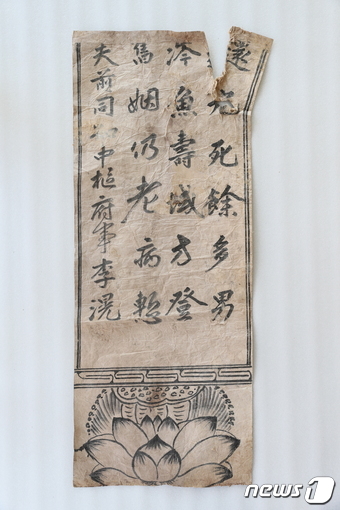 死餘多男
冷魚壽域方登
姻仍老病慙
夫前同中樞府事李滉
news1